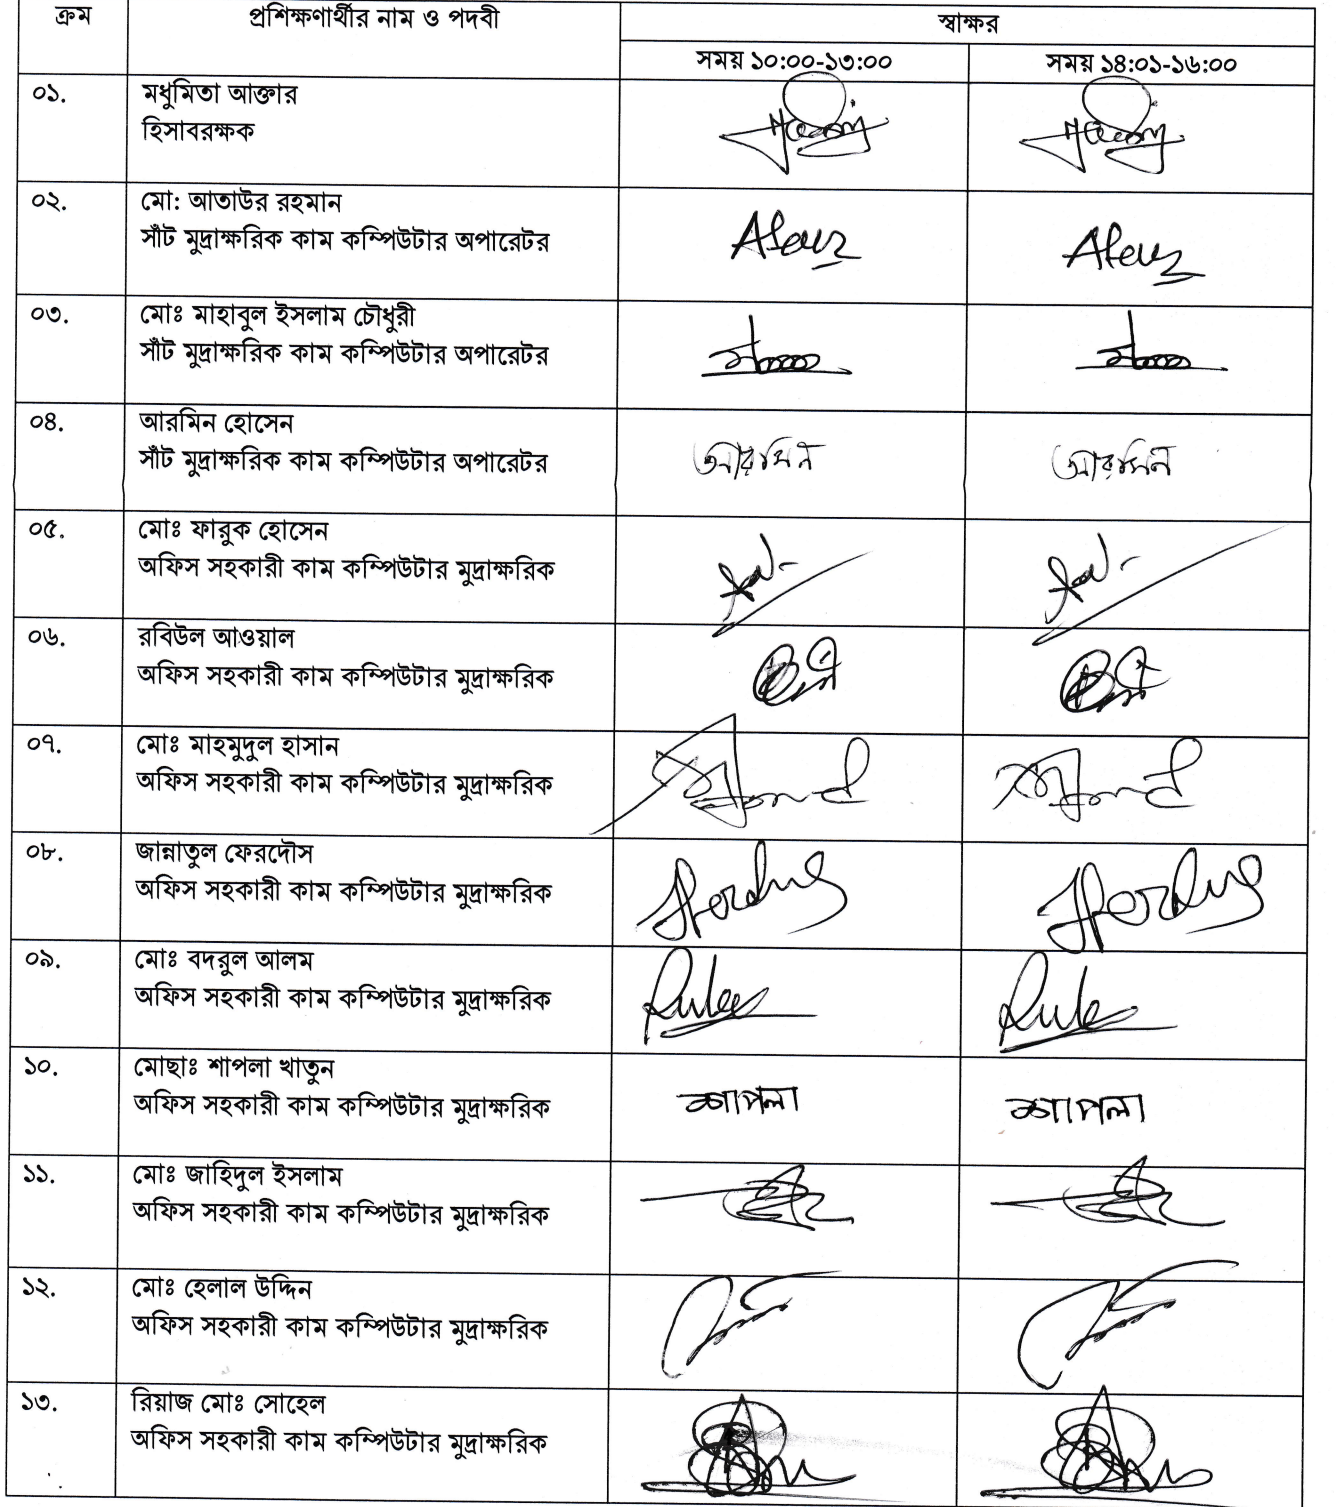 ক্রম প্রশিক্ষণার্থীর নাম ও পদবী স্বাক্ষর
সময় ১০:০০-১৩:০০ সময় ১৪:০১-১৬:০০
০১. মধুমিতা আক্তার
হিসাবরক্ষক
০২. মো: আতাউর রহমান
সাঁট মুদ্রাক্ষরিক কাম কম্পিউটার অপারেটর
০৩. মোঃ মাহাবুল ইসলাম চৌধুরী
সাঁট মুদ্রাক্ষরিক কাম কম্পিউটার অপারেটর
০৪. আরমিন হোসেন
সাঁট মুদ্রাক্ষরিক কাম কম্পিউটার অপারেটর আরমিন আরমিন
০৫. মোঃ ফারুক হোসেন
অফিস সহকারী কাম কম্পিউটার মুদ্রাক্ষরিক
০৬. রবিউল আওয়াল
অফিস সহকারী কাম কম্পিউটার মুদ্রাক্ষরিক
০৭. মোঃ মাহমুদুল হাসান
অফিস সহকারী কাম কম্পিউটার মুদ্রাক্ষরিক
০৮. জান্নাতুল ফেরদৌস
অফিস সহকারী কাম কম্পিউটার মুদ্রাক্ষরিক
০৯. মোঃ বদরুল আলম
অফিস সহকারী কাম কম্পিউটার মুদ্রাক্ষরিক
১০. মোছাঃ শাপলা খাতুন
অফিস সহকারী কাম কম্পিউটার মুদ্রাক্ষরিক শাপলা শাপলা
১১. মোঃ জাহিদুল ইসলাম
অফিস সহকারী কাম কম্পিউটার মুদ্রাক্ষরিক
১২. মোঃ হেলাল উদ্দিন
অফিস সহকারী কাম কম্পিউটার মুদ্রাক্ষরিক
১৩. রিয়াজ মোঃ সোহেল
অফিস সহকারী কাম কম্পিউটার মুদ্রাক্ষরিক